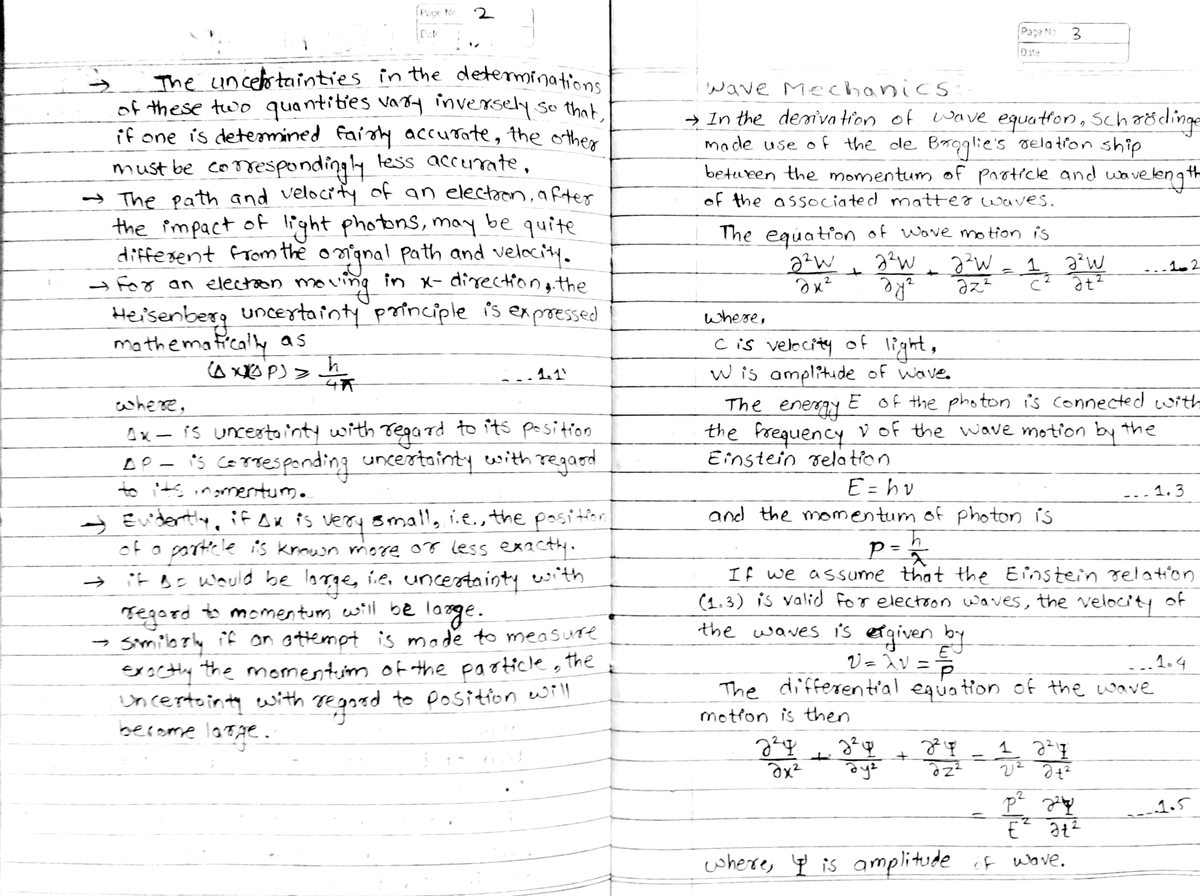 Page No 2
Date
→ The uncertainties in the determinations
of these two quantities vary inversely so that,
if one is determined fairly accurate, the other
must be correspondingly less accurate,
→ The path and velocity of an electron, after
the impact of light photons, may be quite
different from the orignal path and velocity.
→ For an electron moving in x- direction, the
Heisenberg uncertainty principle is expressed
mathematically as
(Δx)(ΔP) ≥ h/4π ...1.1
where,
Δx – is uncertainty with regard to its position
ΔP – is corresponding uncertainty with regard
to its momentum.
→ Evidently, if Δx is very small, i.e., the position
of a particle is known more or less exactly.
→ if Δp would be large, i.e. uncertainty with
regard to momentum will be large.
→ Similarly if an attempt is made to measure
exactly the momentum of the particle, the
Uncertainty with regard to position will
become large.
Page No 3
Date
Wave Mechanics:
→ In the derivation of wave equation, Schrödinge
made use of the de Broglie's relation ship
between the momentum of particle and wavelength
of the associated matter waves.
The equation of wave motion is
∂²W/∂x² + ∂²W/∂y² + ∂²W/∂z² = 1/c² ∂²W/∂t² ...1.2
where,
C is velocity of light,
W is amplitude of wave.
The energy E of the photon is connected with
the frequency ν of the wave motion by the
Einstein relation
E = hν ...1.3
and the momentum of photon is
p = h/λ
If we assume that the Einstein relation
(1.3) is valid for electron waves, the velocity of
the waves is given by
v = λν = E/p ...1.4
The differential equation of the wave
motion is then
∂²Ψ/∂x² + ∂²Ψ/∂y² + ∂²Ψ/∂z² = 1/v² ∂²Ψ/∂t²
= p²/E² ∂²Ψ/∂t² ...1.5
where, Ψ is amplitude of wave.